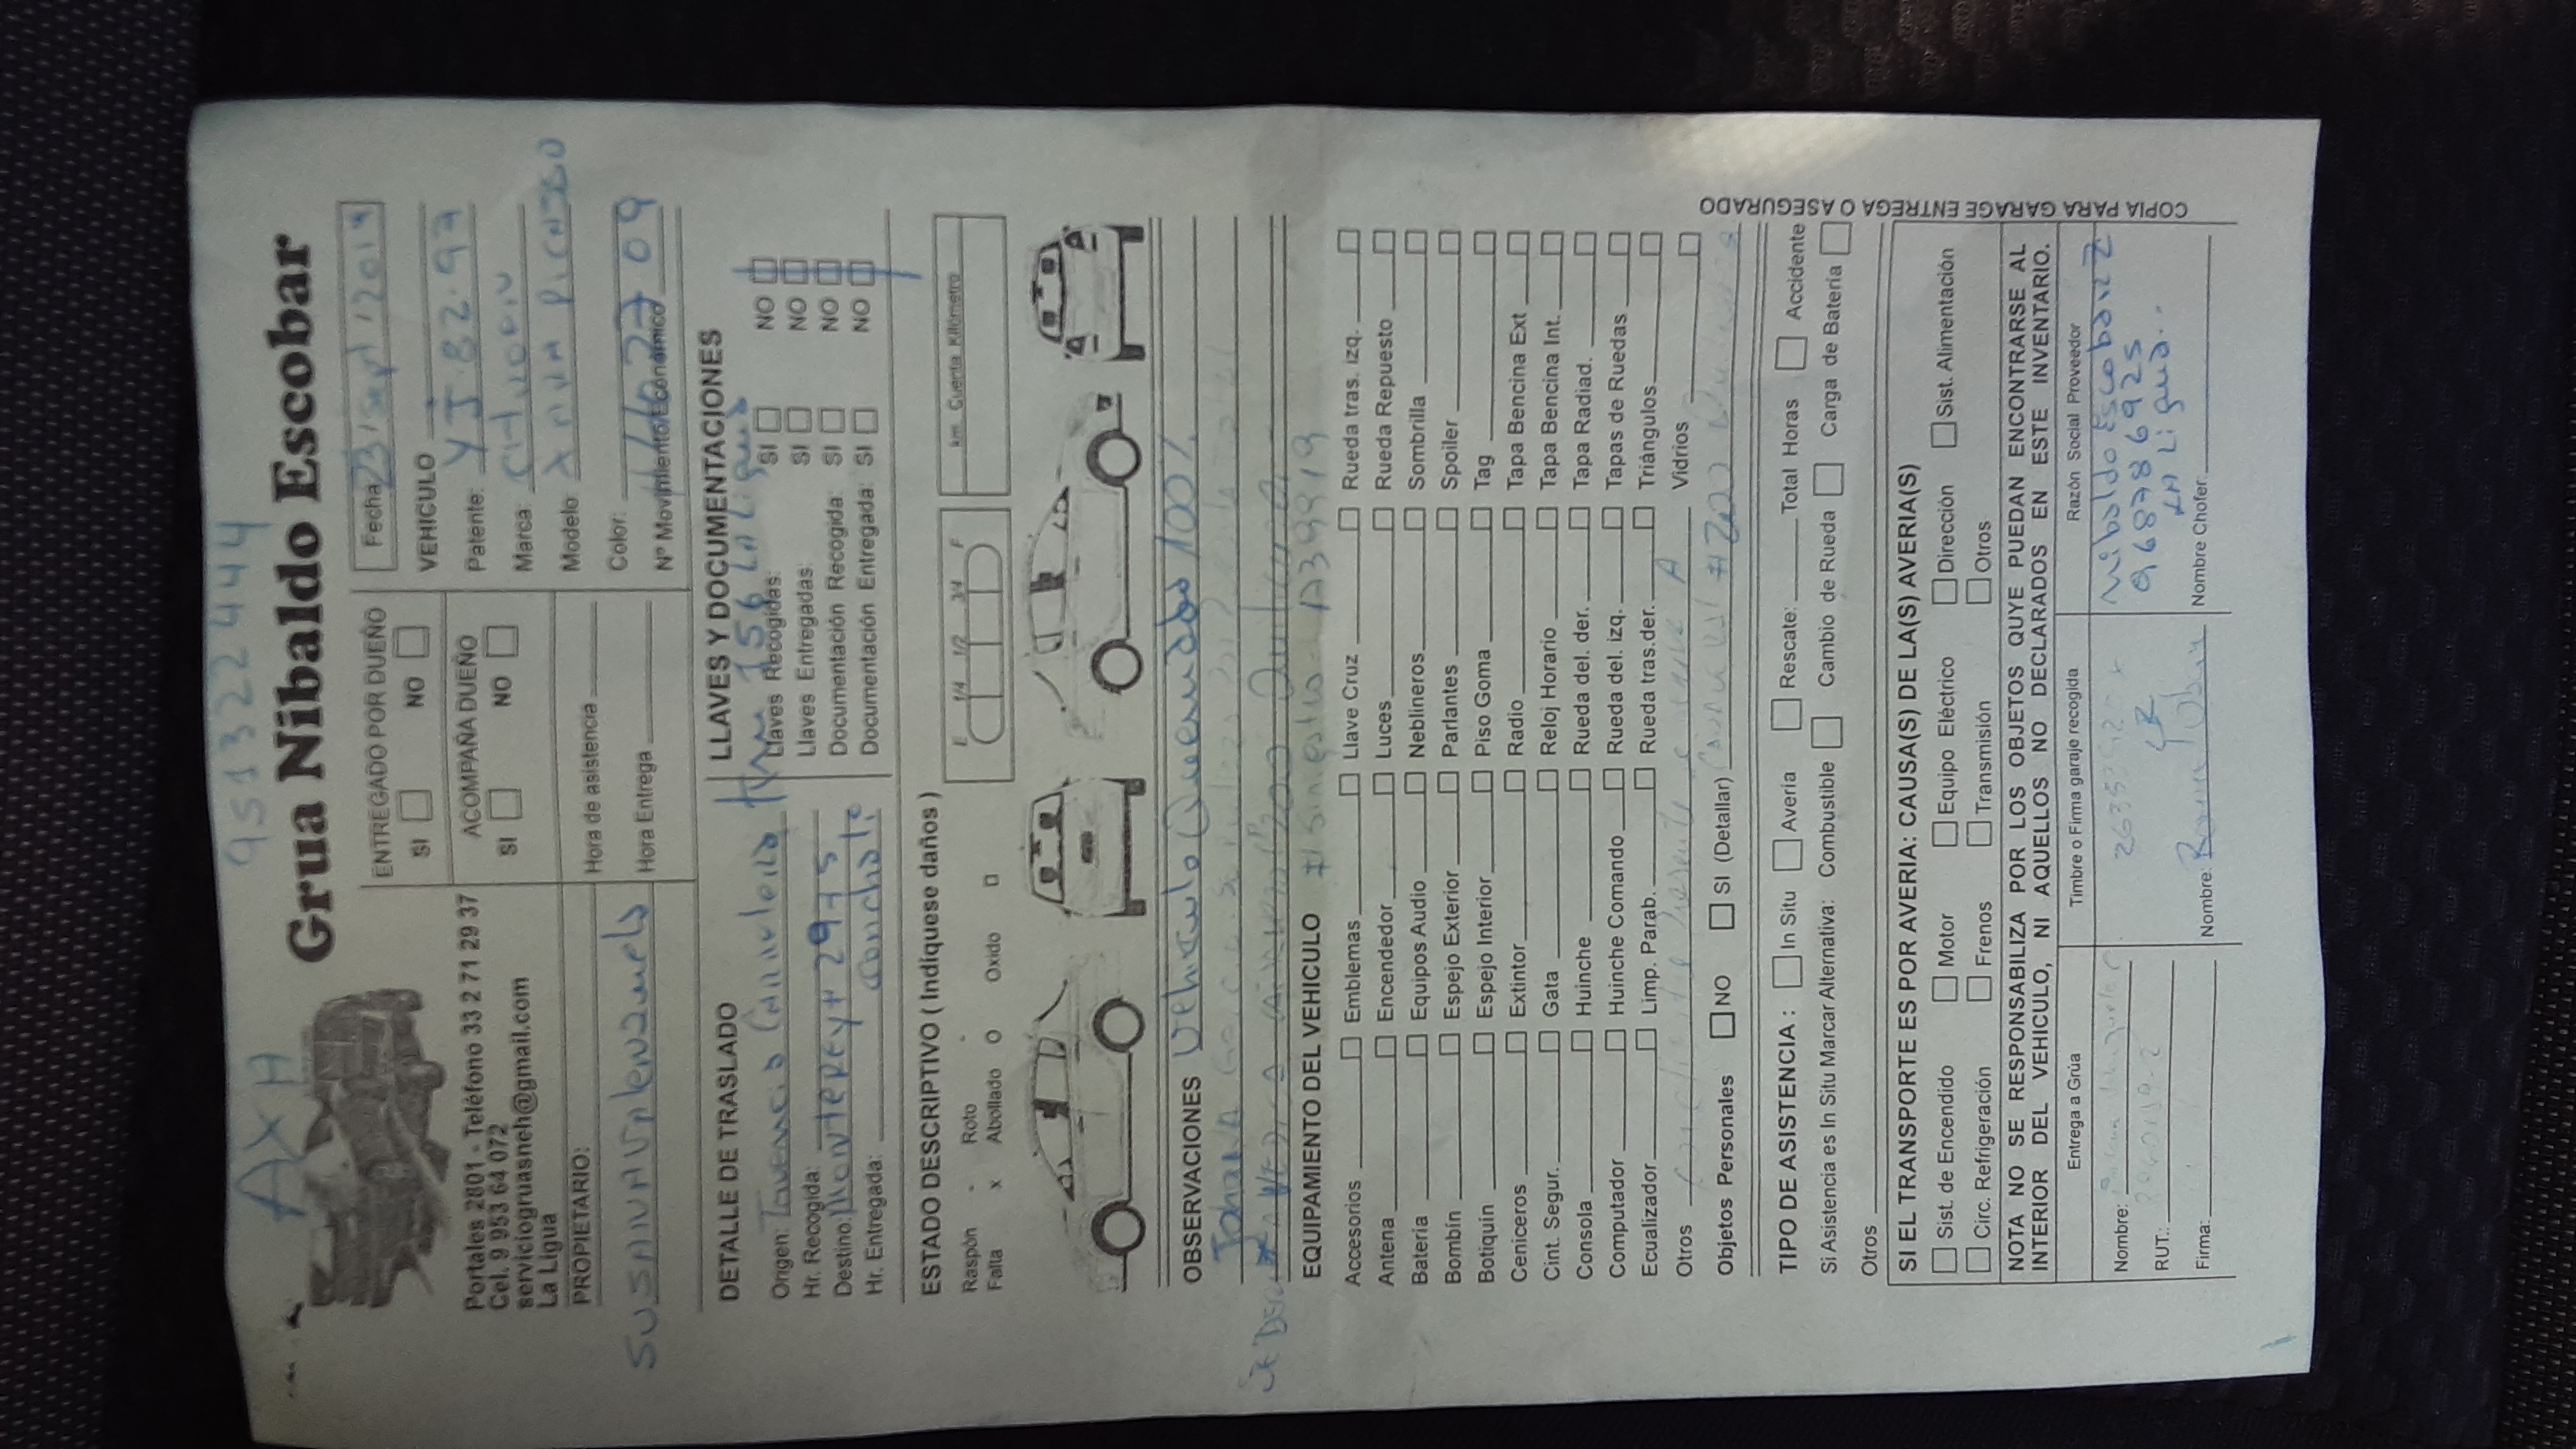 AXA 951322444
Grua Nibaldo Escobar
Portales 2801 - Teléfono 33 2 71 29 37
Cel. 9 953 64 072
serviciogruasneh@gmail.com
La Ligua
PROPIETARIO:
SUSANA VALENZUELA
ENTREGADO POR DUEÑO
SI NO
ACOMPAÑA DUEÑO
SI NO
Hora de asistencia
Hora Entrega
Fecha 23/Sept/2019
VEHICULO
Patente: YJ.82.97
Marca: Citroein
Modelo: XARA PICASSO
Color:
Nº Movimiento Económico
DETALLE DE TRASLADO
Origen:
Hr. Recogida:
Destino: MONTERREY# 2975
Hr. Entregada: Conchali
LLAVES Y DOCUMENTACIONES
Llaves Recogidas: SI NO
Llaves Entregadas: SI NO
Documentación Recogida: SI NO
Documentación Entregada: SI NO
ESTADO DESCRIPTIVO ( Indíquese daños )
Raspón - Roto -
Falta x Abollado O Oxido □
E 1/4 1/2 3/4 F
km. Cuenta Kilómetro
OBSERVACIONES Vehiculo Quemado 100%
EQUIPAMIENTO DEL VEHICULO
Accesorios Emblemas Llave Cruz Rueda tras. izq.
Antena Encendedor Luces Rueda Repuesto
Batería Equipos Audio Neblineros Sombrilla
Bombín Espejo Exterior Parlantes Spoiler
Botiquín Espejo Interior Piso Goma Tag
Ceniceros Extintor Radio Tapa Bencina Ext
Cint. Segur. Gata Reloj Horario Tapa Bencina Int.
Consola Huinche Rueda del. der. Tapa Radiad.
Computador Huinche Comando Rueda del. izq. Tapas de Ruedas
Ecualizador Limp. Parab. Rueda tras.der. Triángulos
Otros Vidrios
Objetos Personales NO SI (Detallar)
TIPO DE ASISTENCIA : In Situ Avería Rescate: Total Horas Accidente
Si Asistencia es In Situ Marcar Alternativa: Combustible Cambio de Rueda Carga de Batería
Otros
SI EL TRANSPORTE ES POR AVERIA: CAUSA(S) DE LA(S) AVERIA(S)
Sist. de Encendido Motor Equipo Eléctrico Dirección Sist. Alimentación
Circ. Refrigeración Frenos Transmisión Otros
NOTA NO SE RESPONSABILIZA POR LOS OBJETOS QUYE PUEDAN ENCONTRARSE AL
INTERIOR DEL VEHICULO, NI AQUELLOS NO DECLARADOS EN ESTE INVENTARIO.
Entrega a Grúa
Nombre:
RUT.:
Firma:
Timbre o Firma garaje recogida
Nombre:
Razón Social Proveedor
Nibaldo Escobar Z
968786925
LA Ligua..
Nombre Chofer:
COPIA PARA GARAGE ENTREGA O ASEGURADO